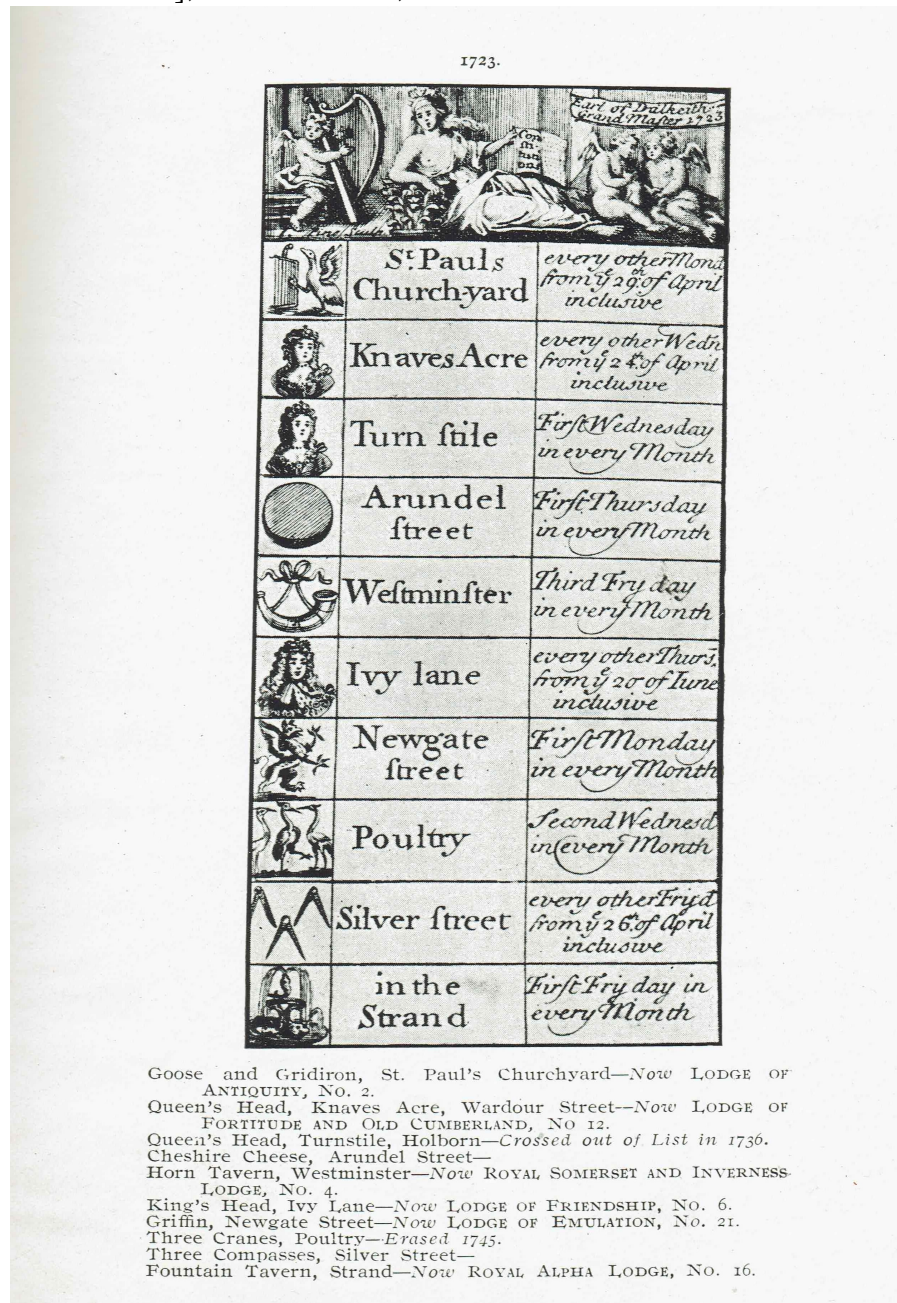 1723.
Earl of Dalkeith
Grand Master 1723
Con
sti
tuti
ons
St. Pauls
Church-yard
every other Mond
from ye 29th of April
inclusive
Knaves Acre
every other Wedn
from ye 24th of April
inclusive
Turn ſtile
Firſt Wednesday
in every Month
Arundel
ſtreet
Firſt Thursday
in every Month
Weſtminſter
Third Fry day
in every Month
Ivy lane
every other Thurs,
from ye 20th of Iune
inclusive
Newgate
ſtreet
Firſt Monday
in every Month
Poultry
Second Wednesd
in every Month
Silver ſtreet
every other Fryd
from ye 26th of April
incluſive
in the
Strand
Firſt Fry day in
every Month
Goose and Gridiron, St. Paul's Churchyard—Now LODGE OF
ANTIQUITY, No. 2.
Queen's Head, Knaves Acre, Wardour Street--Now LODGE OF
FORTITUDE AND OLD CUMBERLAND, NO 12.
Queen's Head, Turnstile, Holborn—Crossed out of List in 1736.
Cheshire Cheese, Arundel Street—
Horn Tavern, Westminster—Now ROYAL SOMERSET AND INVERNESS
LODGE, No. 4.
King's Head, Ivy Lane—Now LODGE OF FRIENDSHIP, No. 6.
Griffin, Newgate Street—Now LODGE OF EMULATION, No. 21.
Three Cranes, Poultry—Erased 1745.
Three Compasses, Silver Street—
Fountain Tavern, Strand—Now ROYAL ALPHA LODGE, No. 16.